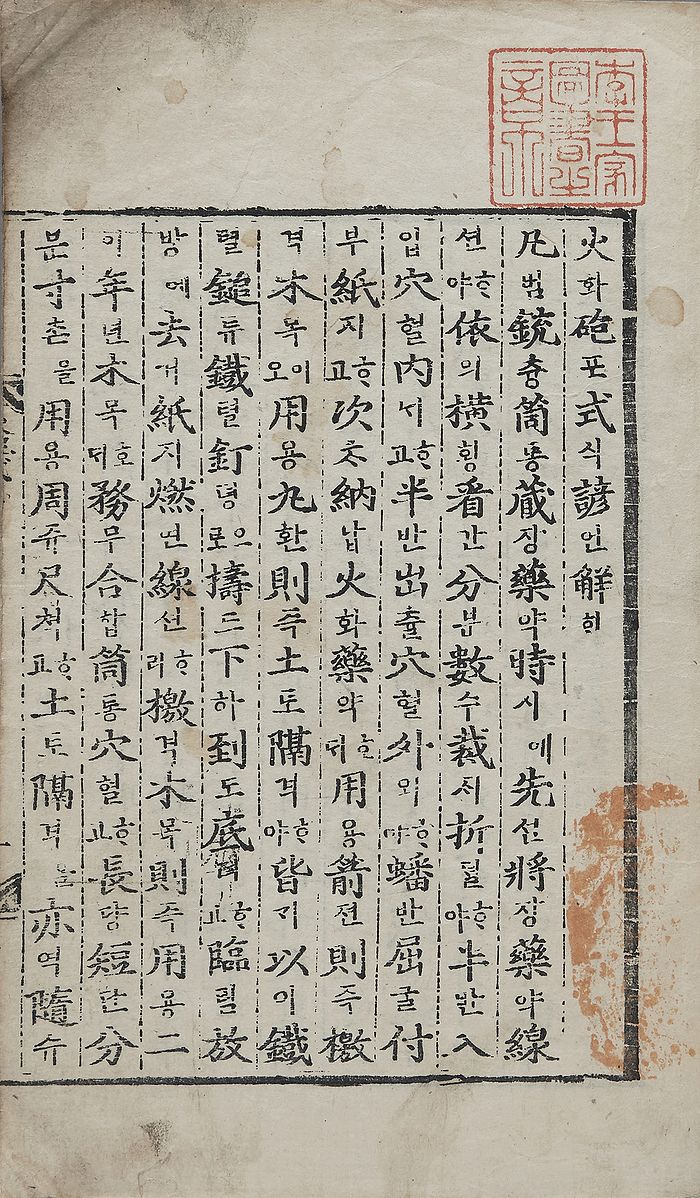 李王家
圖書之
火화砲포式식諺언解ᄒᆡ
凡범銃츙筒통蔵장藥약時시예先션將쟝藥약線
션ᄒᆞ야依의橫횡看간分분數수裁ᄌᆡ折뎔ᄒᆞ야半반入
입穴혈內ᄂᆡᄒᆞ고半반出츌穴혈外외ᄒᆞ야蟠반屈굴付
부紙지ᄒᆞ고次ᄎᆞ納납火화藥약호ᄃᆡ用용箭젼則즉檄
격木목이오用용丸환則즉土토隔격ᄒᆞ야皆ᄀᆡ以이鐵
텰鎚튜鐵텰釘뎡으로擣도下하到도底뎌ᄒᆞ고臨림放
방에去거紙지燃연線션ᄒᆞ라檄격木목則즉用용二
이年년木목호ᄃᆡ務무合합筒통穴혈ᄒᆞ고長댱短단分
분寸촌을用용周쥬尺쳑ᄒᆞ고土토隔격을亦역隨슈